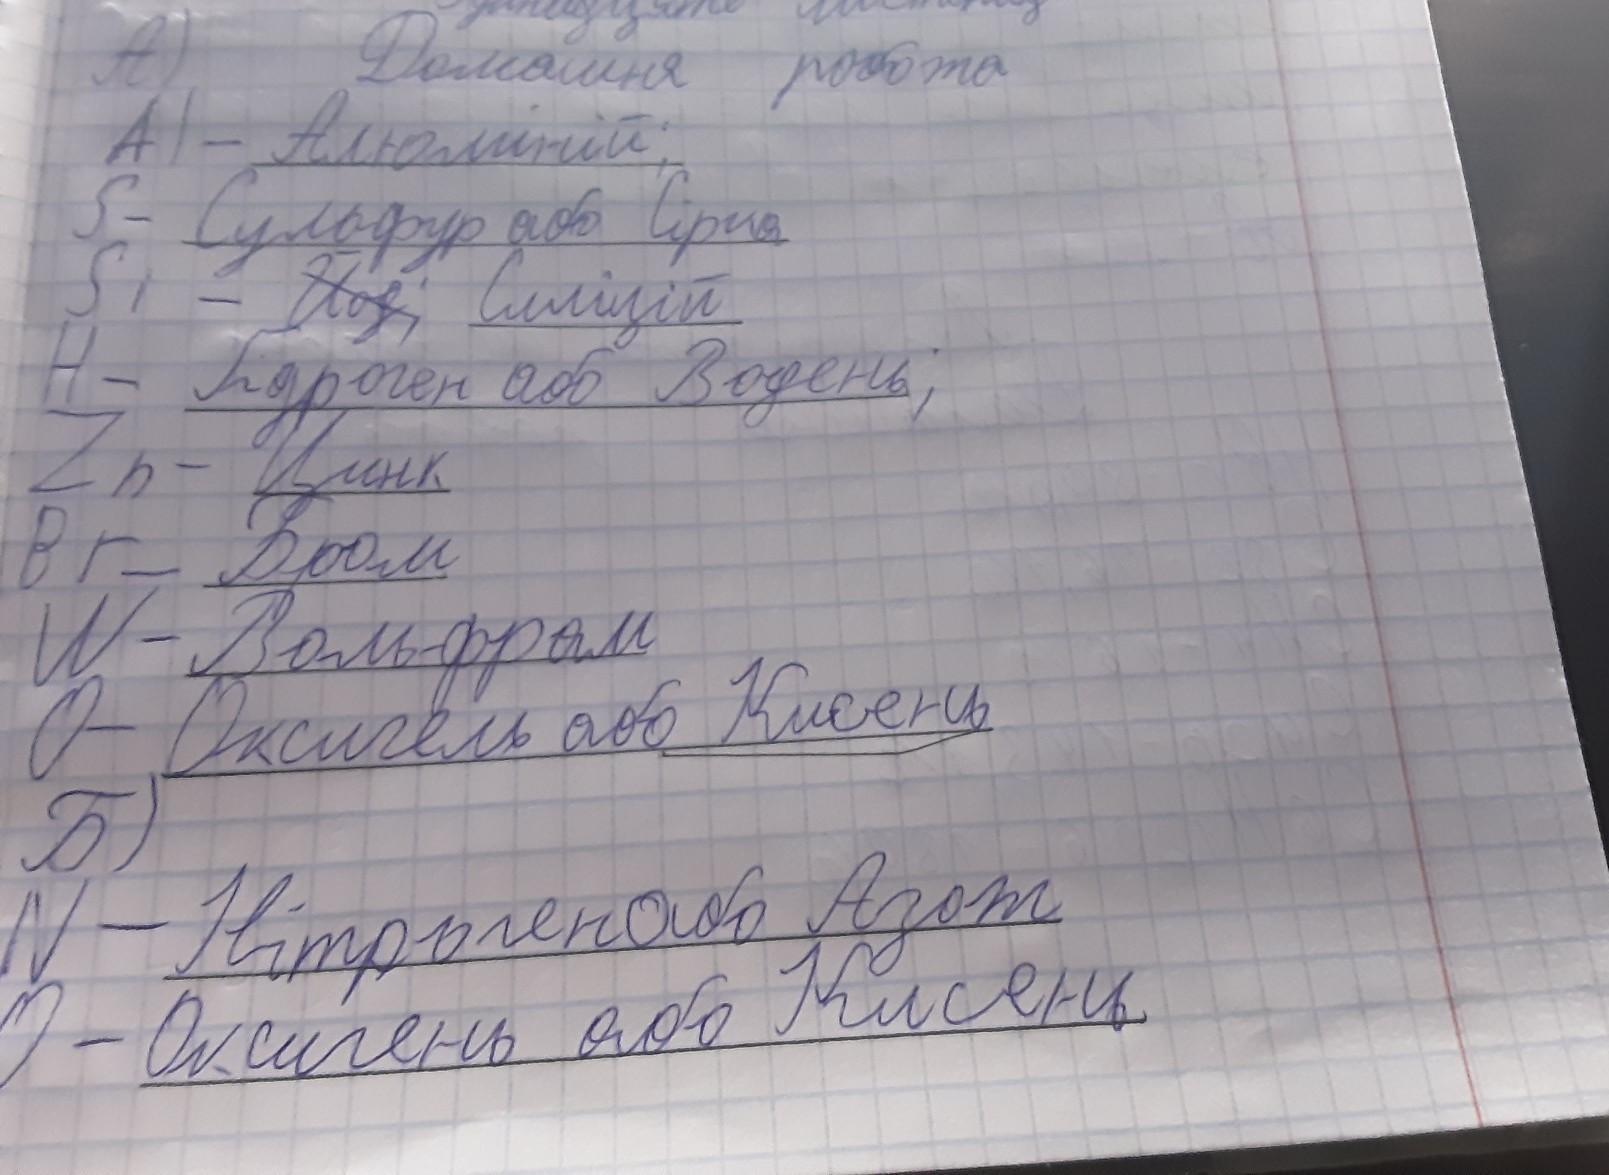 А) Домашня робота
Al - Алюміній;
S- Сульфур або Сірка
Si - Йод; Силіцій
H- Гідроген або Водень;
Zn- Цинк
Br- Бром
W- Вольфрам
O- Оксигель або Кисень
Б)
N- Нітроген або Азот
O- Оксигень або Кисень